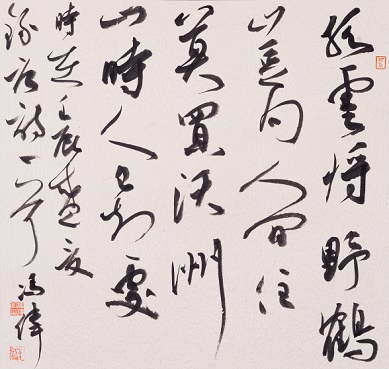 孤雲将野鶴
豈向人间住
莫買沃洲
山時人已知處
時在壬辰盛夏
錄唐詩一首 冯偉